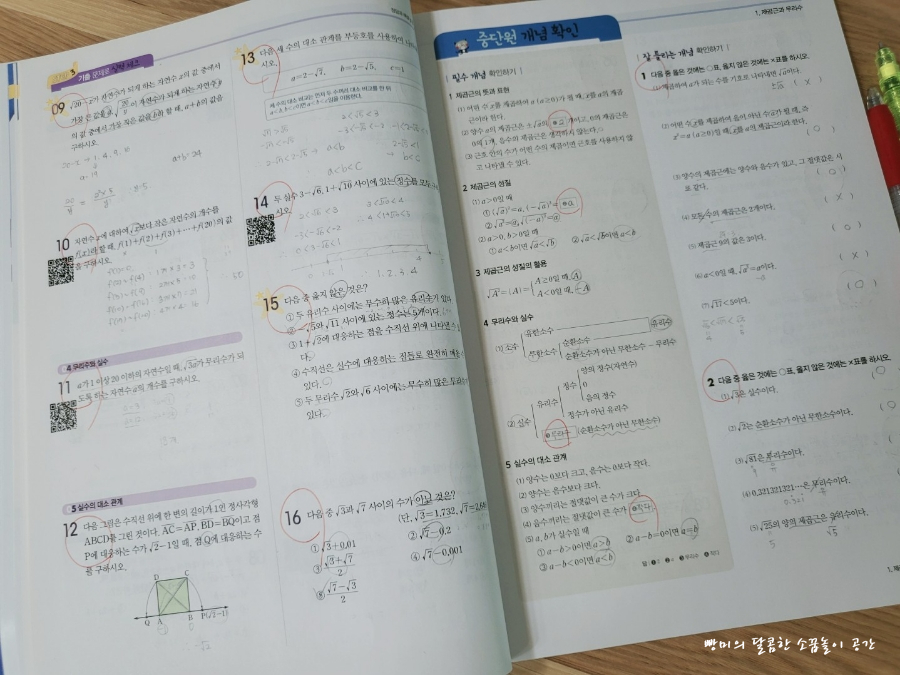 09
√20-a가 자연수가 되게 하는 자연수 a의 값 중에서
가장 큰 값을 a, √20/b이 자연수가 되게 하는 자연수 b
의 값 중에서 가장 작은 값을 b라 할 때, a+b의 값을
구하시오.
a+b=24
10
자연수 x에 대하여 √x보다 작은 자연수의 개수를
f(x)라 할 때, f(1)+f(2)+f(3)+…+f(20)의 값
을 구하시오.
50
4 무리수와 실수
11
a가 1 이상 20 이하의 자연수일 때, √3a가 무리수가 되
도록 하는 자연수 a의 개수를 구하시오.
5 실수의 대소 관계
12
다음 그림은 수직선 위에 한 변의 길이가 1인 정사각형
ABCD를 그린 것이다. AC=AP, BD=BQ이고 점
P에 대응하는 수가 √2-1일 때, 점 Q에 대응하는 수
를 구하시오.
D C
Q A B P(√2-1)
-√2
13
다음 세 수의 대소 관계를 부등호를 사용하여
시오.
a=2-√7, b=2-√3, c=1
a<b
a<b<c
14
두 실수 3-√6, 1+√10 사이에 있는 정수를 모두
시오.
1, 2, 3, 4
15
다음 중 옳지 않은 것은?
① 두 유리수 사이에는 무수히 많은 유리수가 있다
② -√5와 √11 사이에 있는 정수는 5개이다.
③ 1+√2에 대응하는 점을 수직선 위에 나타낼 수
다.
④ 수직선은 실수에 대응하는 점들로 완전히 메울
있다.
⑤ 두 무리수 √2와 √6 사이에는 무수히 많은 무리수
있다.
16
다음 중 √3과 √7 사이의 수가 아닌 것은?
(단, √3=1.732, √7=2.64
① √3+0.01
② √7-0.2
③ √3+√7/2
④ √7-0.001
⑤ √7-√3/2
1. 제곱근과 무리수
중단원 개념 확인
필수 개념 확인하기
1 제곱근의 뜻과 표현
(1) 어떤 수 x를 제곱하여 a(a≥0)가 될 때, x를 a의 제곱
근이라 한다.
(2) 양수 a의 제곱근은 ±√a의 ❶2개이고, 0의 제곱근은
0의 1개, 음수의 제곱근은 생각하지 않는다.
(3) 근호 안의 수가 어떤 수의 제곱이면 근호를 사용하지 않
고 나타낼 수 있다.
2 제곱근의 성질
(1) a>0일 때
① (√a)²=a, (-√a)²=❷a
② √a²=a, √(-a)²=a
(2) a>0, b>0일 때
① a<b이면 √a<√b
② √a<√b이면 a<b
3 제곱근의 성질의 활용
√A²=|A|= A≥0일 때, A
A<0일 때, -A
4 무리수와 실수
(1) 소수
유한소수
무한소수
순환소수
유리수
순환소수가 아닌 무한소수 - 무리수
(2) 실수
유리수
정수
양의 정수(자연수)
0
음의 정수
정수가 아닌 유리수
❸무리수 (순환소수가 아닌 무한소수)
5 실수의 대소 관계
(1) 양수는 0보다 크고, 음수는 0보다 작다.
(2) 양수는 음수보다 크다.
(3) 양수끼리는 절댓값이 큰 수가 크다.
(4) 음수끼리는 절댓값이 큰 수가 ❹작다.
(5) a, b가 실수일 때
① a-b>0이면 a>b
② a-b=0이면 a=b
③ a-b<0이면 a<b
답 | ❶2 ❷a ❸무리수 ❹작다
잘 틀리는 개념 확인하기
1 다음 중 옳은 것에는 ○표, 옳지 않은 것에는 ×표를 하시오.
(1) 제곱하여 a가 되는 수를 기호로 나타내면 √a이다.
( X )
(2) 어떤 수 x를 제곱하여 음이 아닌 수 a가 될 때, 즉
x²=a (a≥0)일 때, x를 a의 제곱근이라 한다.
( O )
(3) 양수의 제곱근에는 양수와 음수가 있고, 그 절댓값은 서
로 같다.
( O )
(4) 모든 수의 제곱근은 2개이다.
( X )
(5) 제곱근 9의 값은 3이다.
( O )
(6) a<0일 때, √a²=a이다.
( X )
(7) √17<5이다.
( O )
2 다음 중 옳은 것에는 ○표, 옳지 않은 것에는 ×표를 하시오.
(1) √3은 실수이다.
(2) √2는 순환소수가 아닌 무한소수이다.
(3) √81은 무리수이다.
(4) 0.321321321…은 무리수이다.
(5) √25의 양의 제곱근은 무리수이다.
빵미의 달콤한 소꿉놀이 공간